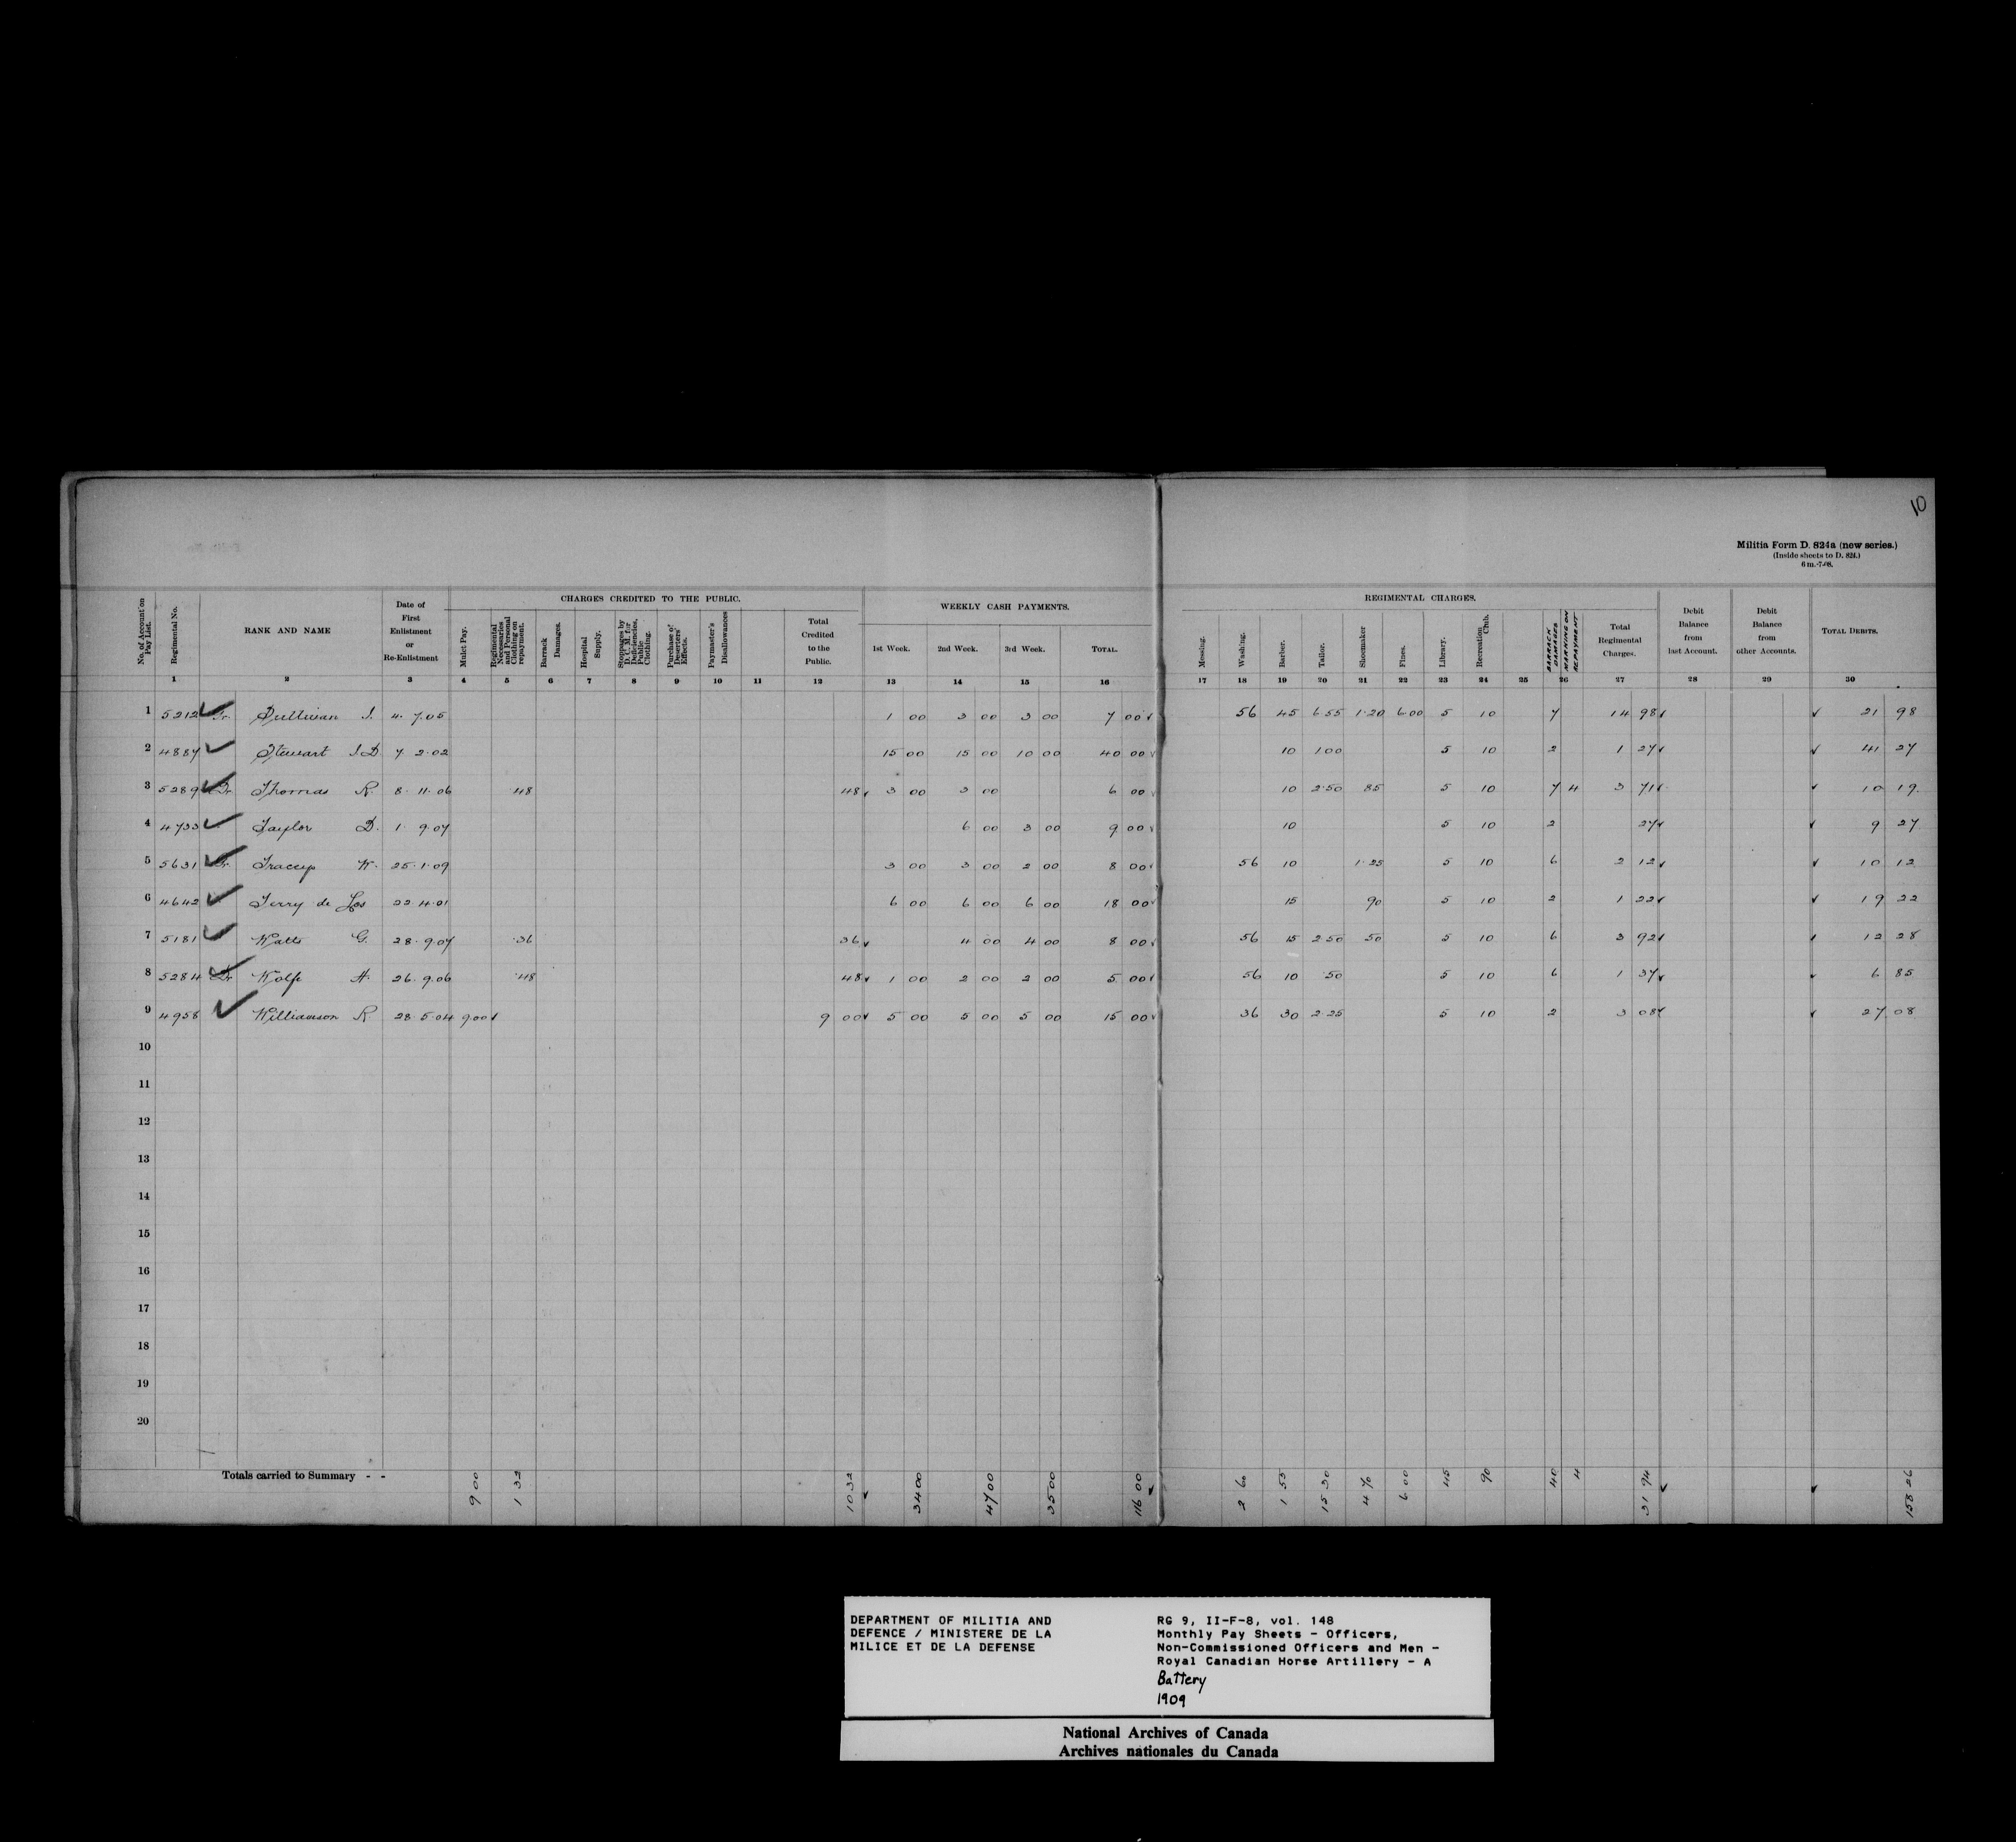 10
Militia Form D. 824a (new series.)
(Inside sheets to D. 824.)
6 m.-7-08.
No. of Account on Pay List. Regimental No. RANK AND NAME Date of First Enlistment or Re-Enlistment CHARGES CREDITED TO THE PUBLIC. WEEKLY CASH PAYMENTS. REGIMENTAL CHARGES. Debit Balance from last Account. Debit Balance from other Accounts. TOTAL DEBITS.
Mulct Pay. Regimental Necessaries and Personal Clothing on repayment. Barrack Damages. Hospital Supply. Stoppages by D. C. M. for Deficiencies, Public Clothing. Purchase of Deserters' Effects. Paymaster's Disallowances Total Credited to the Public. 1st Week. 2nd Week. 3rd Week. TOTAL. Messing. Washing. Barber. Tailor. Shoemaker Fines. Library. Recreation Club. BARRACK DAMAGES MARKING ON REPAYMENT Total Regimental Charges.
1 2 3 4 5 6 7 8 9 10 11 12 13 14 15 16 17 18 19 20 21 22 23 24 25 26 27 28 29 30
1 5212 Tr. Sullivan J. 4. 7.05 1 00 3 00 3 00 7 00 56 45 6.55 1.20 6.00 5 10 7 14 98 21 98
2 4887 Stewart J.D. 7 2.02 15 00 15 00 10 00 40 00 10 1.00 5 10 2 1 27 41 27
3 5289 Dr. Thomas R. 8. 11.06 48 48 3 00 3 00 6 00 10 2.50 85 5 10 7 4 3 71 10 19
4 4733 Taylor D. 1. 9.07 6 00 3 00 9 00 10 5 10 2 27 9 27
5 5631 Tr. Tracey W. 25.1.09 3 00 3 00 2 00 8 00 56 10 1.25 5 10 6 2 12 10 12
6 4642 Terry de Los 22.4.01 6 00 6 00 6 00 18 00 15 90 5 10 2 1 22 19 22
7 5181 Watts G. 28.9.07 .36 36 4 00 4 00 8 00 56 15 2.50 50 5 10 6 3 92 12 28
8 5284 Dr Wolfe H. 26.9.06 .48 48 1 00 2 00 2 00 5 00 56 10 .50 5 10 6 1 37 6 85
9 4958 Williamson R. 28.5.04 9.00 9 00 5 00 5 00 5 00 15 00 36 30 2.25 5 10 2 3 08 27 08
10
11
12
13
14
15
16
17
18
19
20
Totals carried to Summary - - 9 00 1 32 10 32 34 00 47 00 35 00 116 00 2 60 1 55 15 30 4 70 6 00 45 90 40 4 31 94 158 26
DEPARTMENT OF MILITIA AND
DEFENCE / MINISTERE DE LA
MILICE ET DE LA DEFENSE
RG 9, II-F-8, vol. 148
Monthly Pay Sheets - Officers,
Non-Commissioned Officers and Men -
Royal Canadian Horse Artillery - A
Battery
1909
National Archives of Canada
Archives nationales du Canada